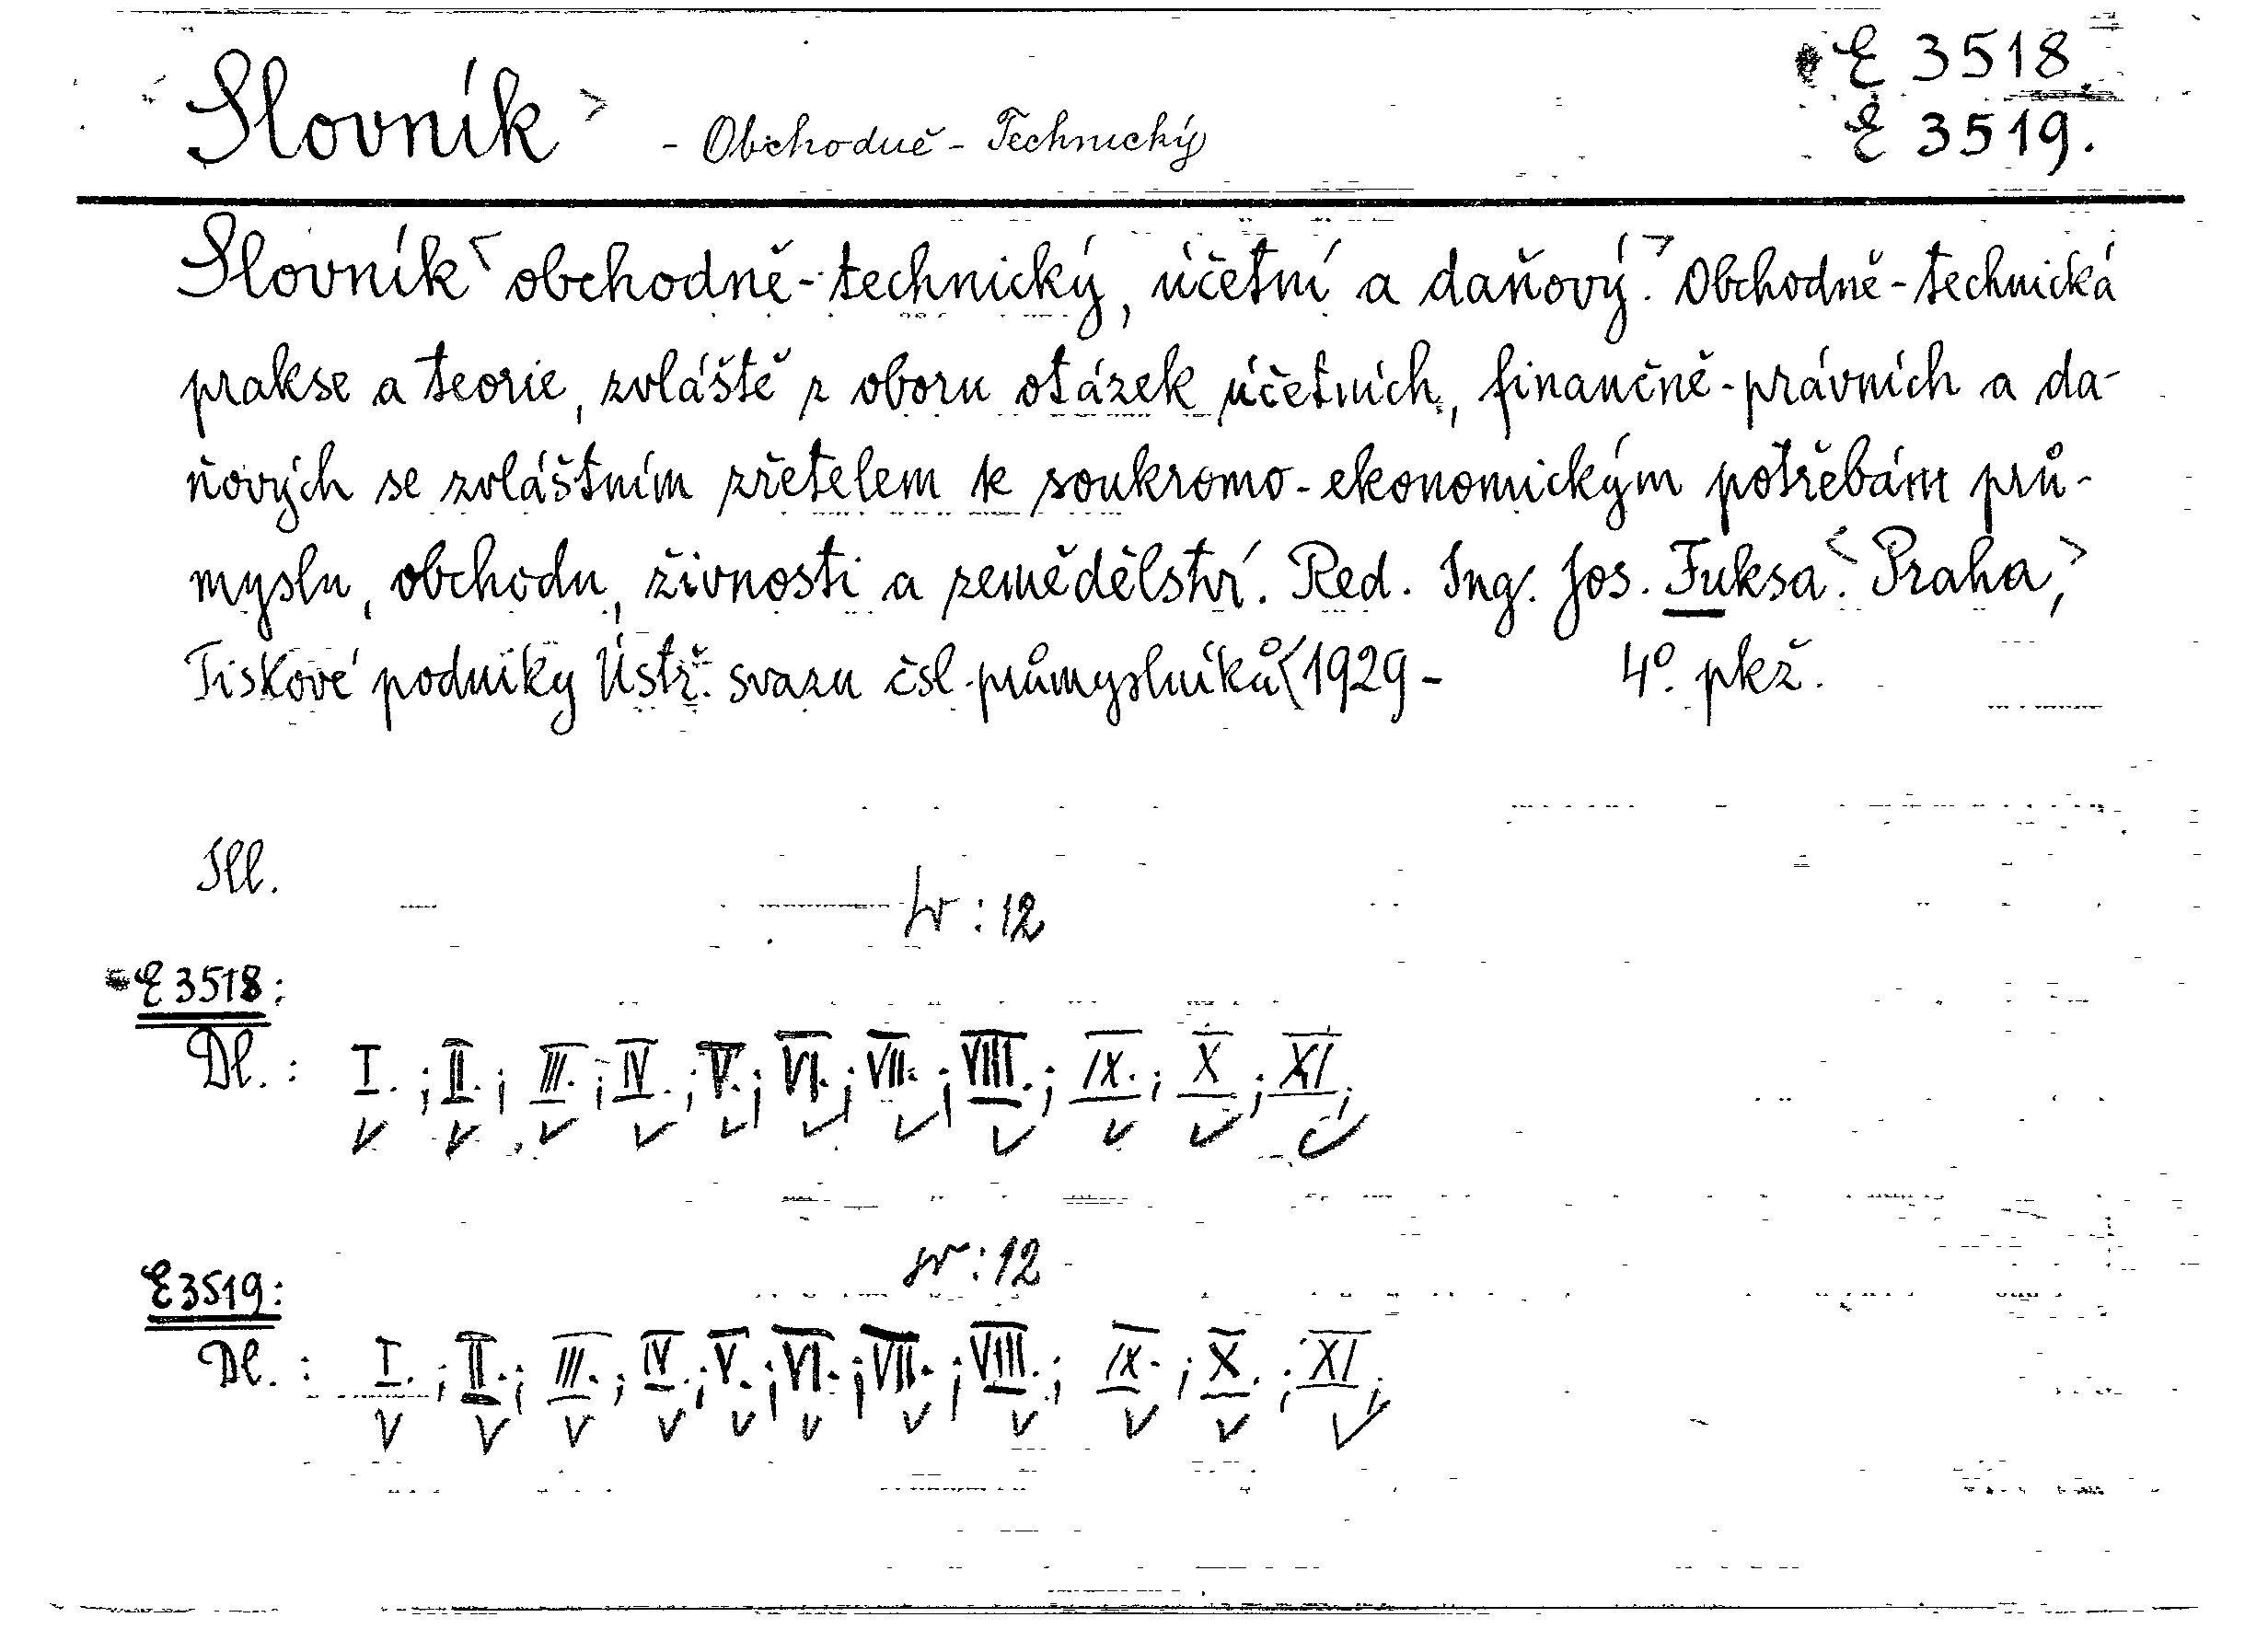 Slovník > - Obchodně - Technický
E 3518.
E 3519.
Slovník < obchodně-technický, účetní a daňový. > Obchodně-technická
prakse a teorie, zvláště z oboru otázek účetních, finančně-právních a da-
ňových se zvláštním zřetelem k soukromo-ekonomickým potřebám prů-
myslu, obchodu, živnosti a zemědělství. Red. Ing. Jos. Fuksa. < Praha, >
Tiskové podniky Ústř. svazu čsl. průmyslníků < 1929 - 4°. pkž.
Ill.
: 12
E 3518:
Dl. : I. ; II. ; III. ; IV. ; V. ; VI. ; VII. ; VIII. ; IX. ; X ; XI ;
: 12
E 3519:
Dl. : I. ; II. ; III. ; IV. ; V. ; VI. ; VII. ; VIII. ; IX. ; X. ; XI ;